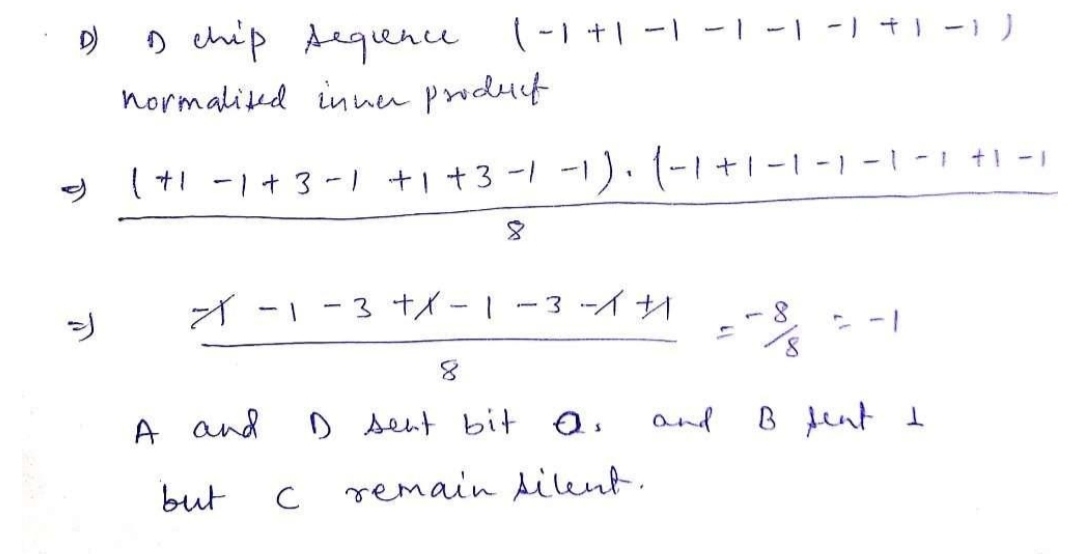 D) D chip sequence (-1 +1 -1 -1 -1 -1 +1 -1)
normalised inner product
⇒ (+1 -1 +3 -1 +1 +3 -1 -1) . (-1 +1 -1 -1 -1 -1 +1 -1
8
⇒ -1 -1 -3 +1 -1 -3 -1 +1 = -8/8 = -1
8
A and D sent bit 0, and B sent 1
but C remain silent.